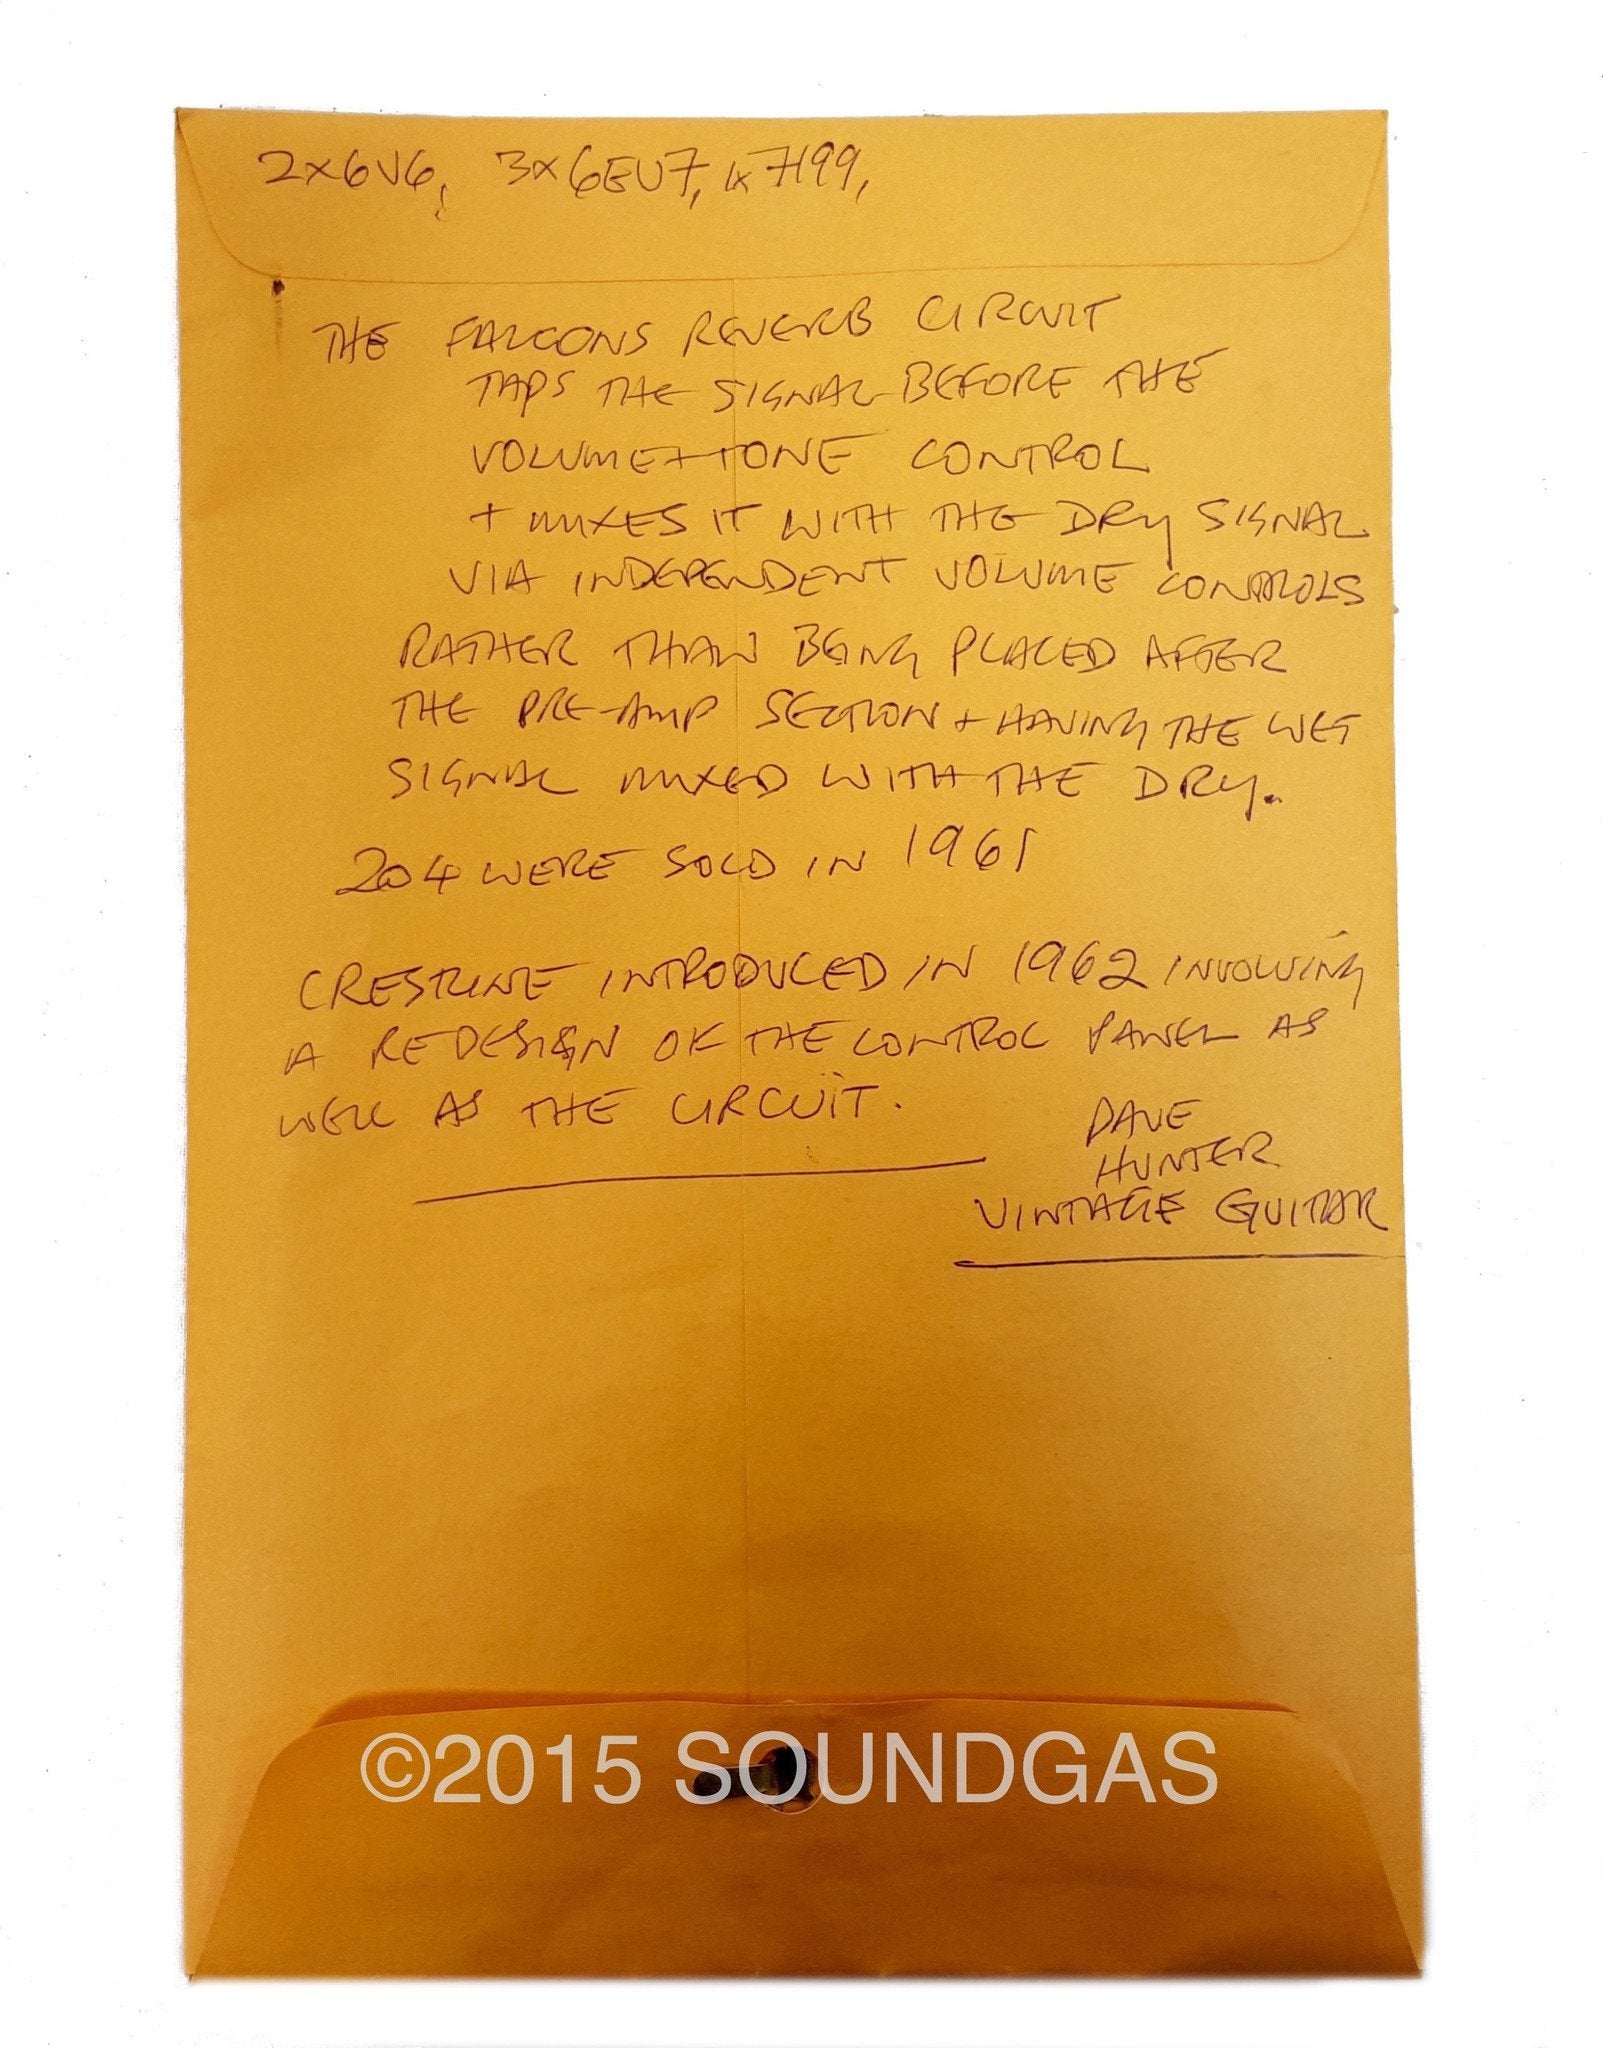 2x6V6, 3x6EU7, 1x7199,
THE FALCONS REVERB CIRCUIT
TAPS THE SIGNAL BEFORE THE
VOLUME + TONE CONTROL
+ MIXES IT WITH THE DRY SIGNAL
VIA INDEPENDENT VOLUME CONTROLS
RATHER THAN BEING PLACED AFTER
THE PRE-AMP SECTION + HAVING THE WET
SIGNAL MIXED WITH THE DRY.
204 WERE SOLD IN 1961
CRESTLINE INTRODUCED IN 1962 INVOLVING
A REDESIGN OF THE CONTROL PANEL AS
WELL AS THE CIRCUIT.
DAVE
HUNTER
VINTAGE GUITAR
©2015 SOUNDGAS